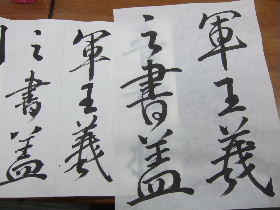 軍王羲
之書蓋
軍王羲
之書蓋